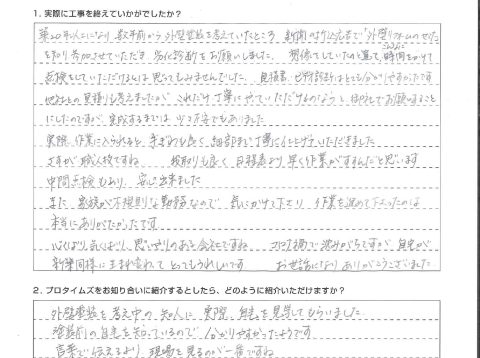 1. 実際に工事を終えていかがでしたか？
築20年以上になり、数年前から外壁塗装を考えていたところ、新聞の折込広告で「外壁リフォームのセミナー」
を知り参加させていただき、劣化診断をお願いしました。想像をしていた以上に時間をかけて
点検をしていただけるとは思ってもみませんでした。見積書、診断はとても分かりやすかったです
他社との見積りも考えましたが、これだけ丁寧にやっていただけるのならと、御社にお願いすること
にしたのですが、完成するまでは 不安でもありました
実際、作業に入られると、手ぎわも良く、細部まで丁寧に仕上げていただきました
さすが職人技ですね 段取りも良く 日程表より早く作業がすすんだと思います
中間点検もあり、安心出来ました
また、家族が不規則な勤務なので、気にかけて下さり、作業を進めて下さったのは
本当にありがたかったです
心くばり、気くばり、思いやりのある会社ですね コロナ禍で 気がちですが、自宅が
新築同様に生まれ変わって とってもうれしいです お世話になり ありがとうございました
2. プロタイムズをお知り合いに紹介するとしたら、どのように紹介いただけますか？
外壁塗装を考え中の知人に 実際、自宅を見学してもらいました
塗装前の自宅を知っているので 分かりやすかったようです
言葉で伝えるより 現場を見るのが一番ですね